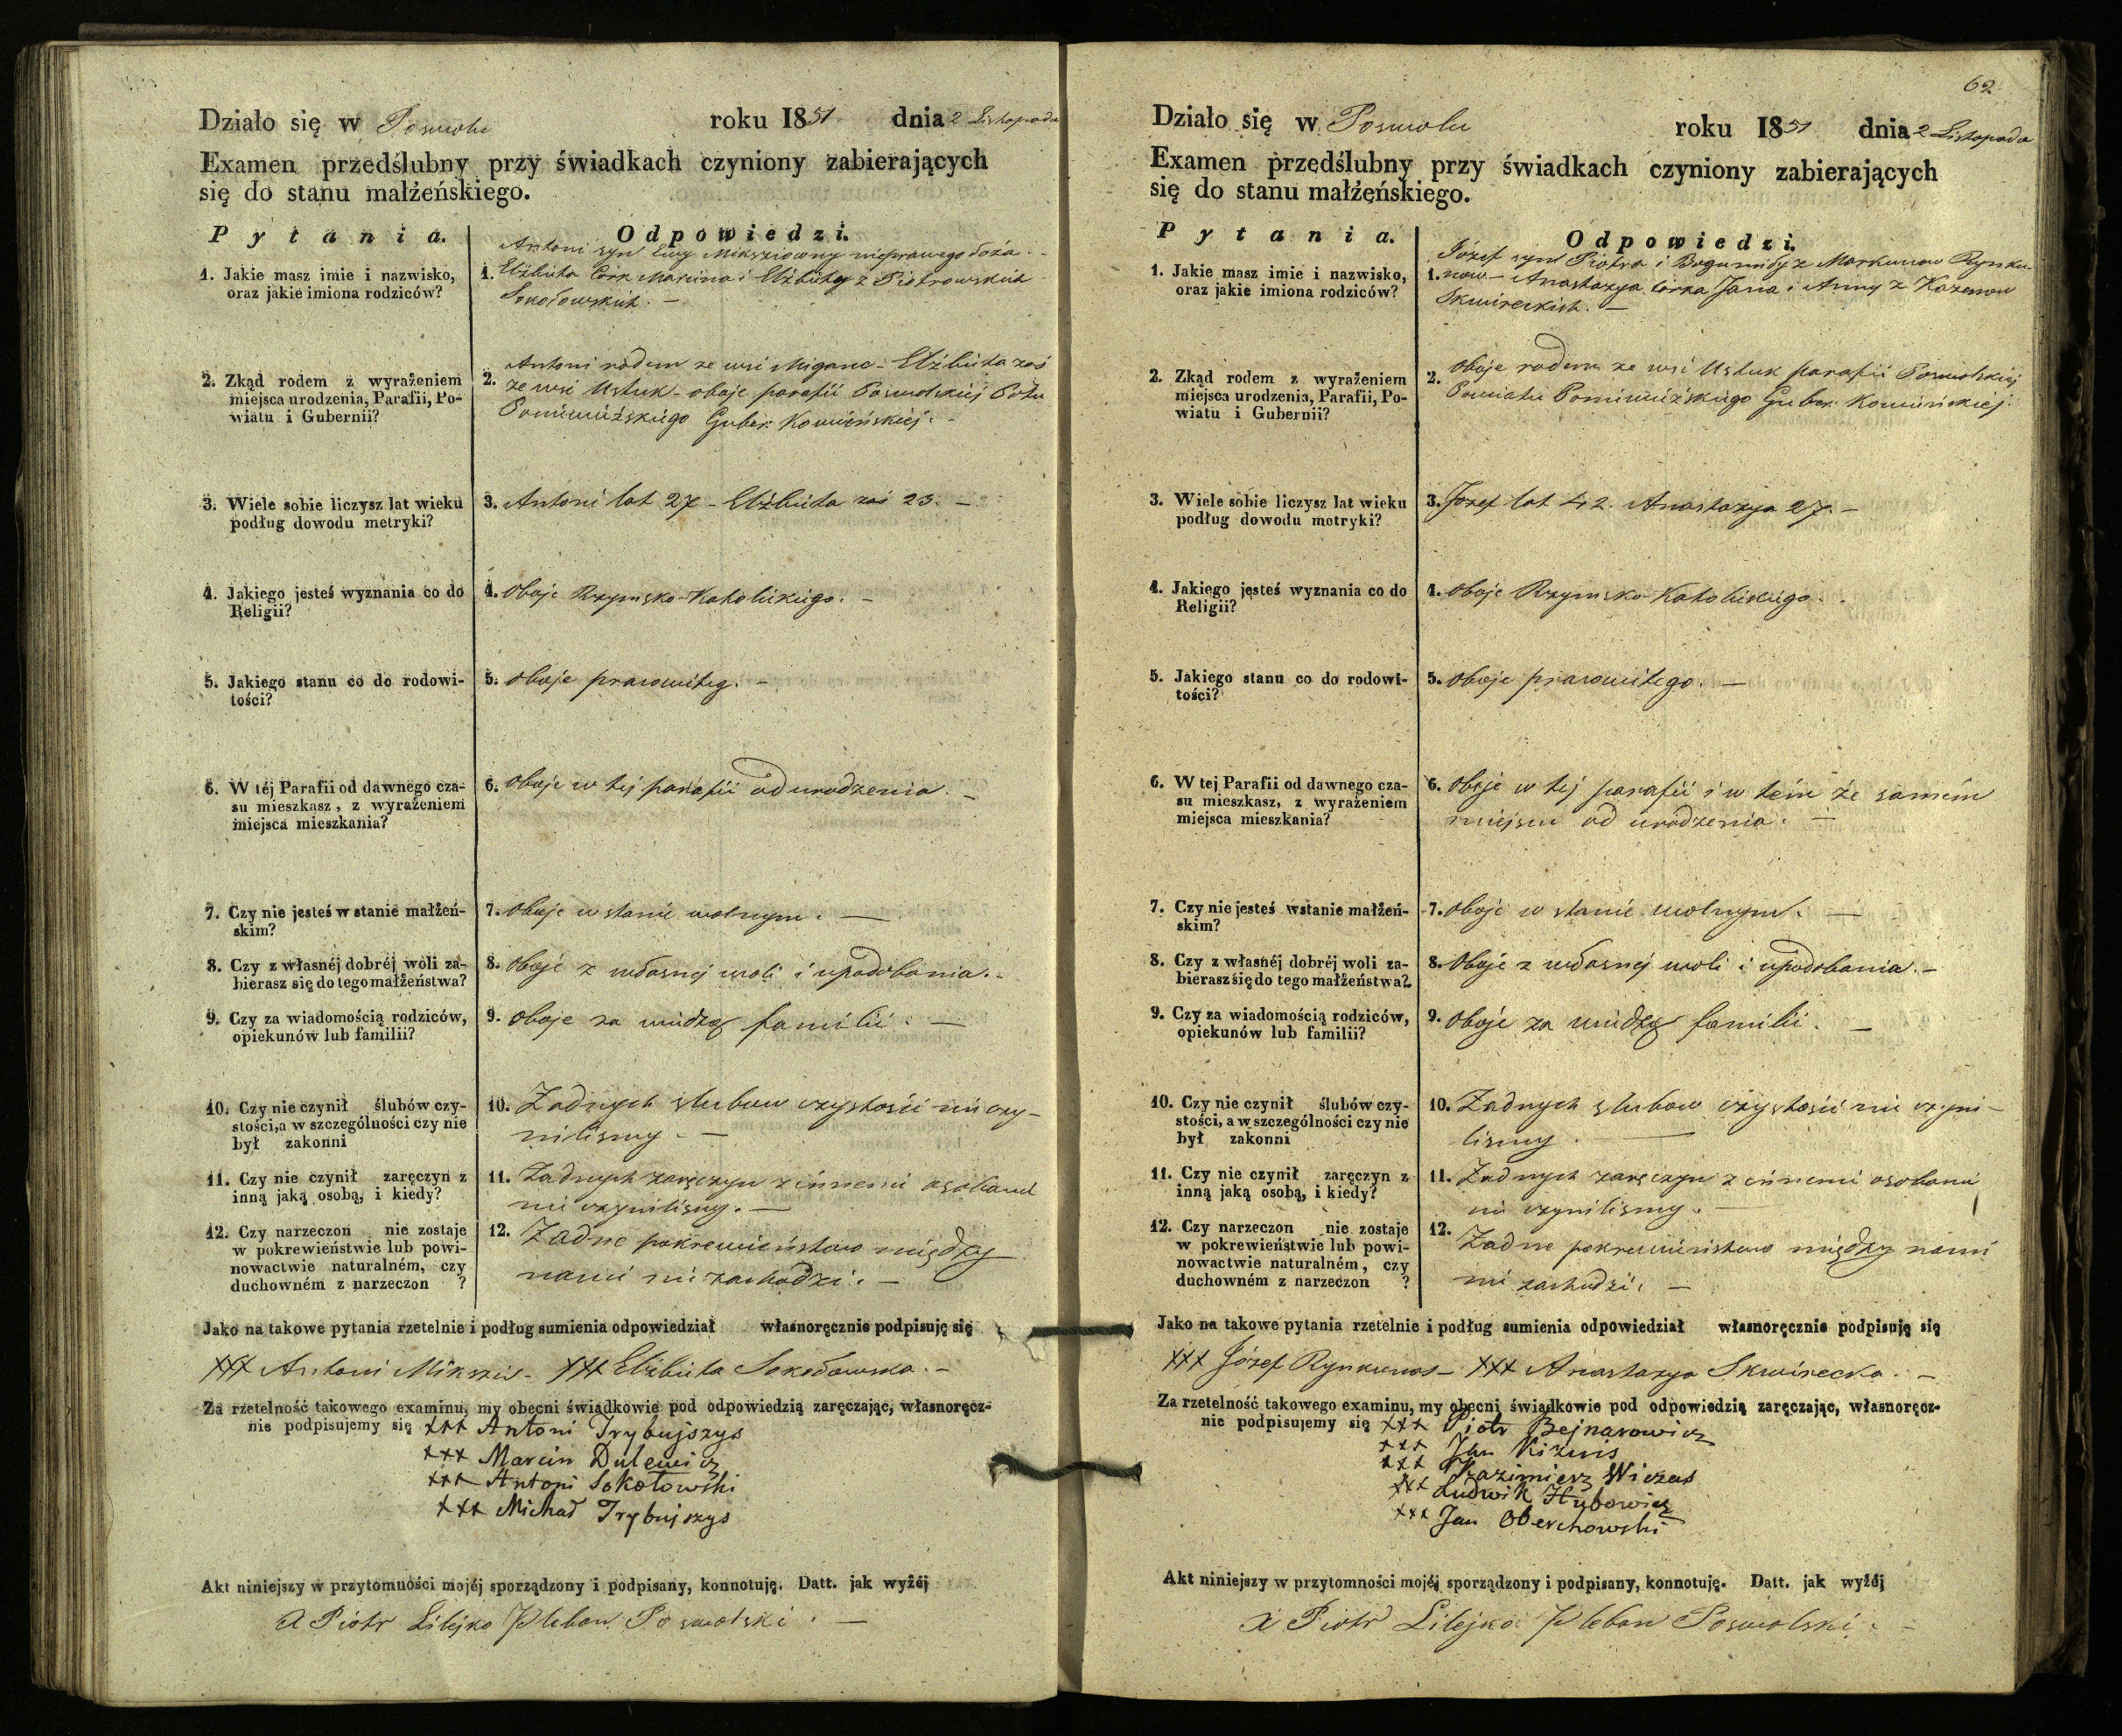 Działo się w Poswolu roku 1851 dnia 2 Listopada
Examen przedślubny przy świadkach czyniony zabierających
się do stanu małżeńskiego.
Pytania. Odpowiedzi.
1. Jakie masz imie i nazwisko,
oraz jakie imiona rodziców?
Antoni syn Ewy Mikszrowny nieprawego łoża. -
1. Elżbieta Córk Marcina i Elżbiety z Piotrowskich
Sokołowskich. -
2. Zkąd rodem z wyrażeniem
miejsca urodzenia, Parafii, Po-
wiatu i Gubernii?
Antoni rodem ze wsi Migance - Elżbieta zaś
2. ze wsi Ustuk - oboje parafii Poswolskiej Pottu
Poniewiéżskiego Guber: Kowieńskiéj. -
3. Wiele sobie liczysz lat wieku
podług dowodu metryki?
3. Antoni lat 27 - Elżbieta zaś 23. -
4. Jakiego jesteś wyznania co do
Religii?
4. Oboje Rzymsko-Katolickiego. -
5. Jakiego stanu co do rodowi-
tości?
5. Oboje prawowiteg. -
6. W téj Parafii od dawnego cza-
su mieszkasz, z wyrażeniem
miejsca mieszkania?
6. Oboje w tej parafii od urodzenia. -
7. Czy nie jesteś w stanie małżeń-
skim?
7. Oboje w stanie wolnym. -
8. Czy z własnéj dobréj woli za-
bierasz się do tego małżeństwa?
8. Oboje z własnej woli i upodobania. -
9. Czy za wiadomością rodziców,
opiekunów lub familii?
9. Oboje za wiedzą familii. -
10. Czy nie czynił ślubów czy-
stości, a w szczególności czy nie
był zakonni
10. Żadnych slubow czystości nie czy-
nilismy. -
11. Czy nie czynił zaręczyn z
inną jaką osobą, i kiedy?
11. Żadnych zaręczyn z innemi osobami
nie czynilismy. -
12. Czy narzeczon nie zostaje
w pokrewieństwie lub powi-
nowactwie naturalném, czy
duchowném z narzeczon ?
12. Żadne pokrewieństwo między
nami nie zachodzi. -
Jako na takowe pytania rzetelnie i podług sumienia odpowiedział własnoręcznie podpisuję się
+++ Antoni Mikszis - +++ Elżbieta Sokołowska. -
Za rzetelność takowego examinu, my obecni świadkowie pod odpowiedzią zaręczając, własnoręcz-
nie podpisujemy się +++ Antoni Trybujszys
+++ Marcin Dulewicz
+++ Antoni Sokołowski
+++ Michał Trybujszys
Akt niniejszy w przytomności mojéj sporządzony i podpisany, konnotuję. Datt. jak wyżéj
X Piotr Lilejko Pleban Poswolski. -
62
Działo się w Poswolu roku 1851 dnia 2 Listopada
Examen przedślubny przy świadkach czyniony zabierających
się do stanu małżeńskiego.
Pytania. Odpowiedzi.
1. Jakie masz imie i nazwisko,
oraz jakie imiona rodziców?
Józef syn Piotra i Bogumiły z Markunow Rynku-
1. now - Anastazya Corka Jana i Anny z Kazenow
Skwireckich. -
2. Zkąd rodem z wyrażeniem
miejsca urodzenia, Parafii, Po-
wiatu i Gubernii?
Oboje rodem ze wsi Ustuk parafii Poswolskiéj
2. Powiatu Poniewiéżskiego Guber: Kowieńskiej.
3. Wiele sobie liczysz lat wieku
podług dowodu metryki?
3. Józef lat 42. Anastazya 27. -
4. Jakiego jesteś wyznania co do
Religii?
4. Oboje Rzymsko-Katolickiego.
5. Jakiego stanu co do rodowi-
tości?
5. Oboje prawowitego. -
6. W tej Parafii od dawnego cza-
su mieszkasz, z wyrażeniem
miejsca mieszkania?
6. Oboje w tej parafii i w tém że samém
miejscu od urodzenia. -
7. Czy nie jesteś wstanie małżeń-
skim?
7. Oboje w stanie wolnym. -
8. Czy z własnéj dobréj woli za-
bierasz się do tego małżeństwa?
8. Oboje z własnej woli i upodobania. -
9. Czy za wiadomością rodziców,
opiekunów lub familii?
9. Oboje za wiedzą familii. -
10. Czy nie czynił ślubów czy-
stości, a w szczególności czy nie
był zakonni
10. Żadnych slubow czystości nie czyni-
lismy. -
11. Czy nie czynił zaręczyn z
inną jaką osobą, i kiedy?
11. Żadnych zaręczyn z innemi osobami
nie czynilismy. -
12. Czy narzeczon nie zostaje
w pokrewieństwie lub powi-
nowactwie naturalném, czy
duchowném z narzeczon ?
12. Żadne pokrewieństwo między nami
nie zachodzi. -
Jako na takowe pytania rzetelnie i podług sumienia odpowiedział własnoręcznie podpisuję się
+++ Józef Rynkunas - +++ Anastazya Skwirecka. -
Za rzetelność takowego examinu, my obecni świadkowie pod odpowiedzią zaręczając, własnoręcz-
nie podpisujemy się +++ Piotr Bejnarowicz
+++ Jan Kiżuis
+++ Kazimierz Wiczas
+++ Ludwik Hubowicz
+++ Jan Oberchowski
Akt niniejszy w przytomności mojéj sporządzony i podpisany, konnotuję. Datt. jak wyżéj
X Piotr Lilejko Pleban Poswolski. -